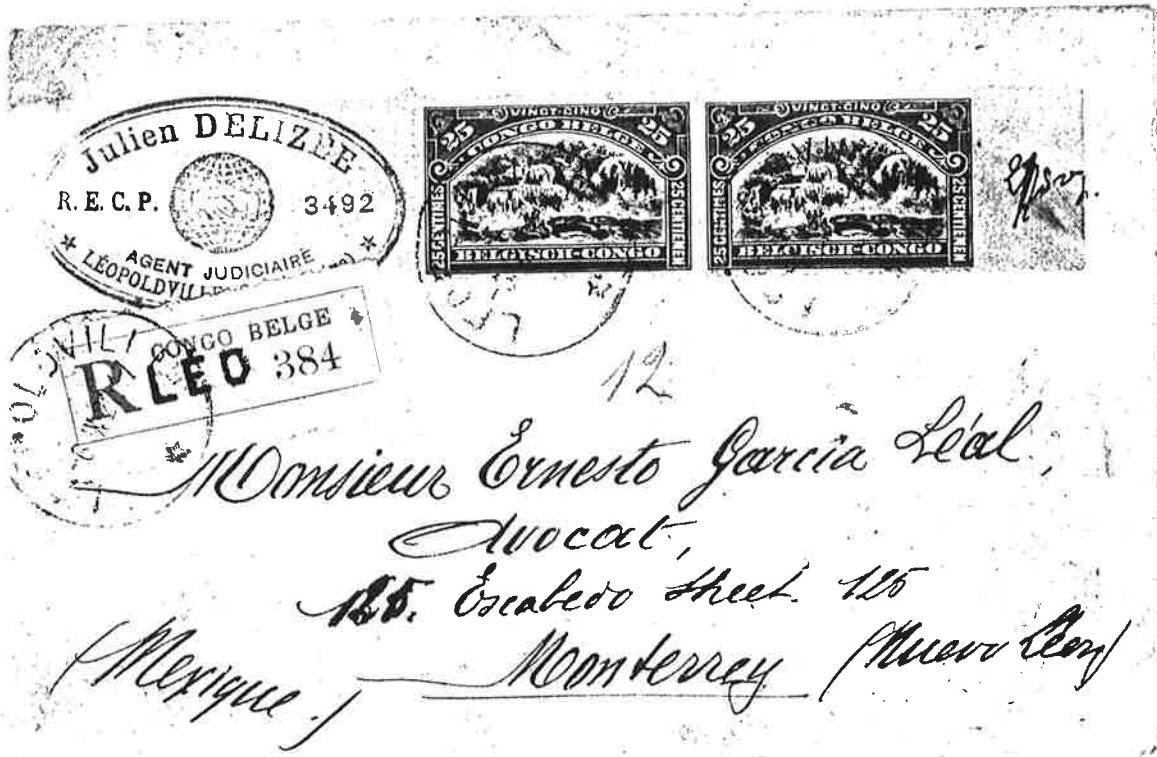 Julien DELIZÉE
R. E. C. P. 3492
AGENT JUDICIAIRE
LÉOPOLDVILLE
VINGT-CINQ
25 25
CONGO BELGE
25 CENTIMES
25 CENTIEMEN
BELGISCH-CONGO
VINGT-CINQ
25 25
CONGO BELGE
25 CENTIMES
25 CENTIEMEN
BELGISCH-CONGO
CONGO BELGE
R LEO 384
12
Monsieur Ernesto Garcia Léal,
Avocat,
125. Escabedo Street. 125
Monterrey (Nuevo Léon)
(Mexique.)